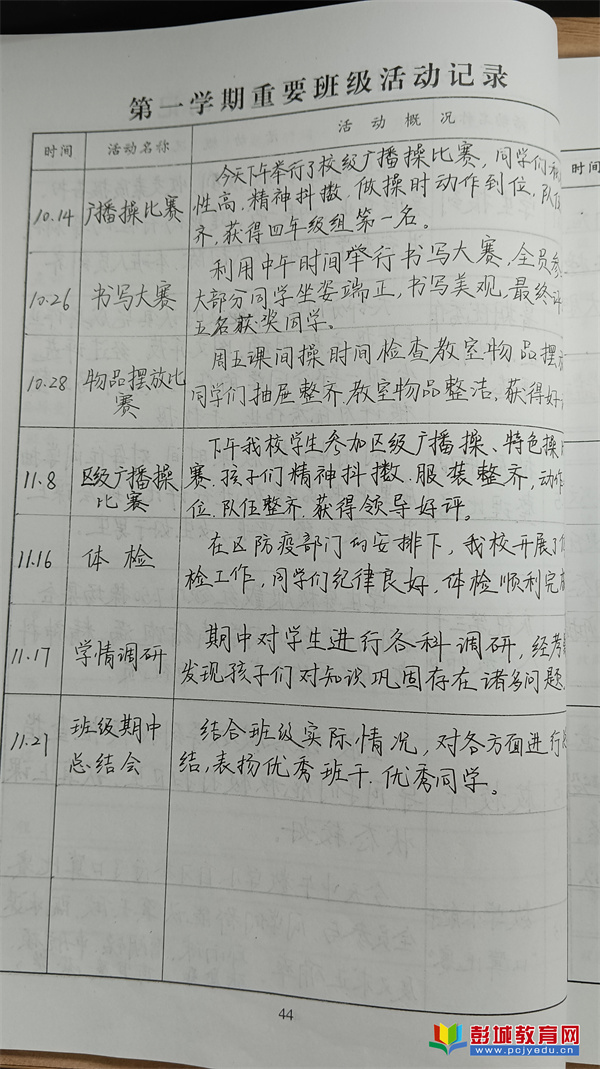 第一学期重要班级活动记录
时间 活动名称 活动概况
10.14 广播操比赛
今天下午举行了校级广播操比赛,同学们
性高.精神抖擞.做操时动作到位,队伍
齐,获得四年级组第一名。
10.26 书写大赛
利用中午时间举行书写大赛,全员参
大部分同学坐姿端正,书写美观,最终评
五名获奖同学。
10.28 物品摆放比
赛
周五课间操时间检查教室物品摆放
同学们抽屉整齐.教室物品整洁,获得好
11.8 区级广播操
比赛
下午我校学生参加区级广播操、特色操
赛.孩子们精神抖擞.服装整齐,动作
位.队伍整齐.获得领导好评。
11.16 体检
在区防疫部门的安排下,我校开展了
检工作,同学们纪律良好,体检顺利完
11.17 学情调研
期中对学生进行各科调研,经考
发现孩子们对知识巩固存在诸多问题.
11.21 班级期中
总结会
结合班级实际情况,对各方面进行
结,表扬优秀班干.优秀同学。
44
彭城教育网
www.pcjyedu.cn